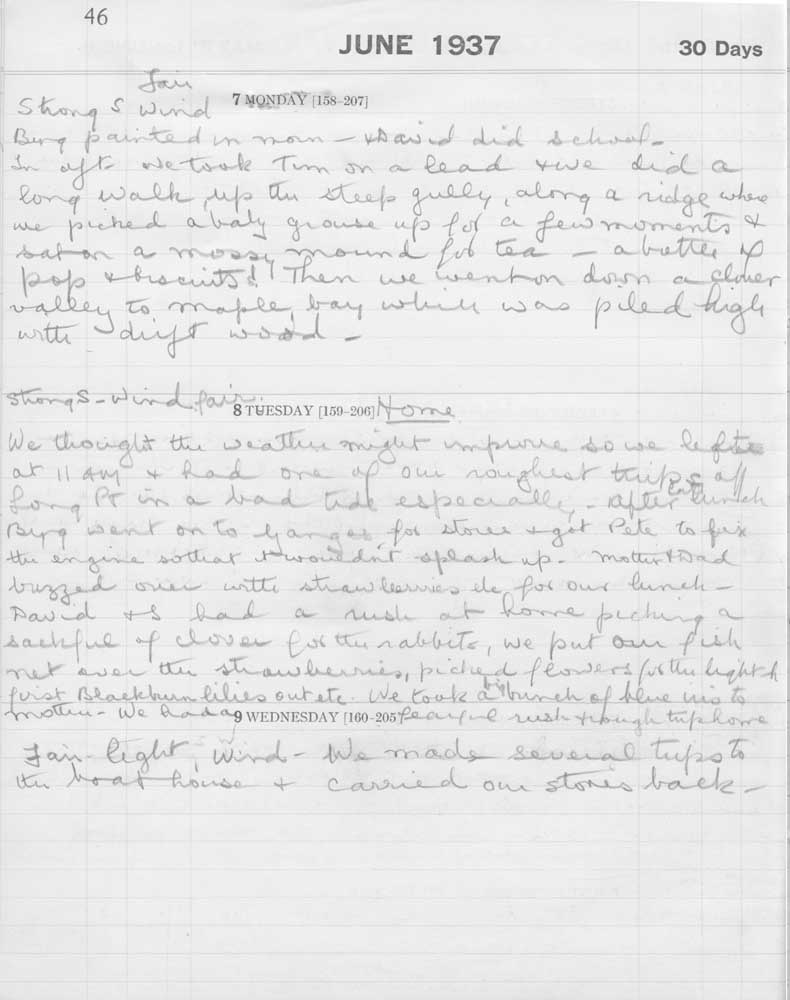 46
JUNE 1937 30 Days
Fair
Strong S Wind 7 MONDAY [158-207]
Byng painted in morn - & David did school -
In aft we took Tim on a lead & we did a
long walk, up the steep gully, along a ridge where
we picked a baby grouse up for a few moments &
sat on a mossy mound for tea - a bottle of
pop & biscuits! Then we went on down a clover
valley to maple bay which was piled high
with drift wood -
Strong S - Wind fair. 8 TUESDAY [159-206] Home
We thought the weather might improve so we left
at 11 AM & had one of our roughest trips off
Long Pt in a bad tide especially - After lunch
Byng went on to Ganges for stores & get Pete to fix
the engine so that it wouldn't splash up. Mother & Dad
buzzed over with strawberries etc for our lunch -
David & I had a rush at home picking a
sackful of clover for the rabbits, we put our fish
net over the strawberries, picked flowers for the light h
first Blackburn lilies out etc. We took a big bunch of blue iris to
mother - We had a fearful rush & rough trip home
9 WEDNESDAY [160-205
Fair light, Wind - We made several trips to
the boat house & carried our stores back -